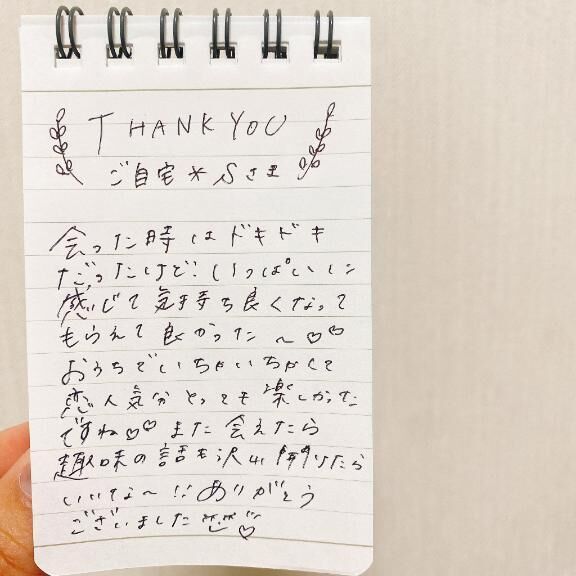 THANK YOU
ご自宅*Sさま
会った時はドキドキ
だったけど!いっぱいに
感じて気持ち良くなって
もらえて良かった〜♡♡
おうちでいちゃいちゃして
恋人気分とっても楽しかった
ですね♡♡また会えたら
趣味の話も沢山聞けたら
いいな〜!!ありがとう
ございました♡